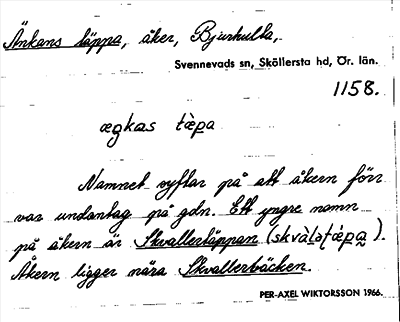 Änkans täppa, åker, Bjurkulla,
Svennevads sn, Sköllersta hd, Ör. län.
1158.
ægkas tæ̀pa
Namnet syftar på att åkern förr
var undantag på gdn. Ett yngre namn
på åkern är Skvallertäppan (skvàḷətǽpa).
Åkern ligger nära Skvallerbäcken.
PER-AXEL WIKTORSSON 1966.